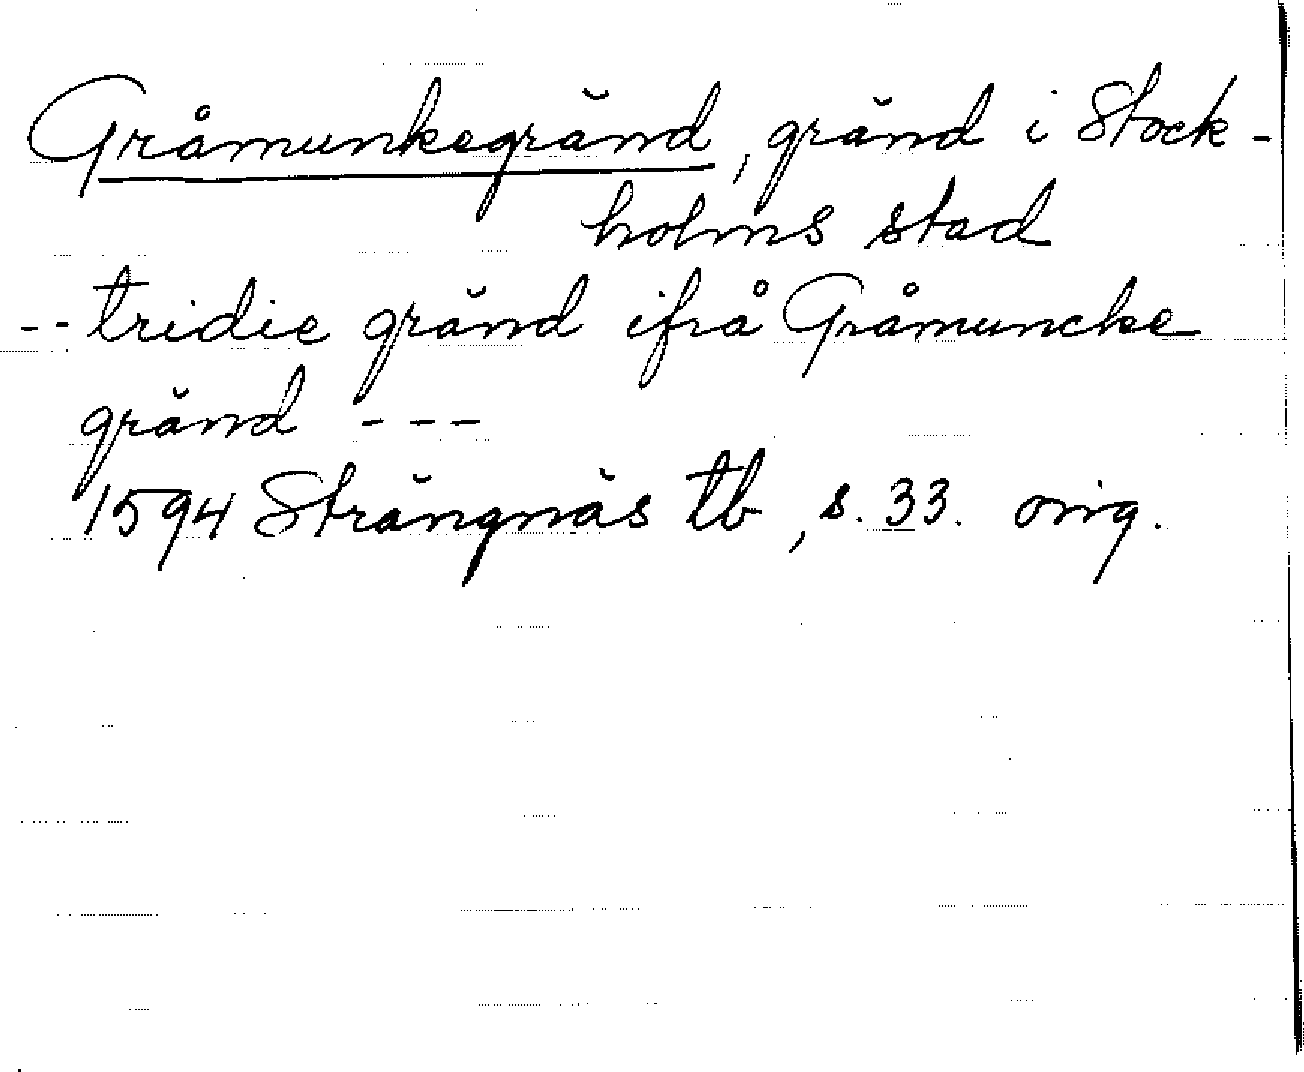 Gråmunkegränd, gränd i Stock-
holms stad
-- tridie gränd ifrå Gråmuncke
gränd ---
1594 Strängnäs tb, s. 33. orig.